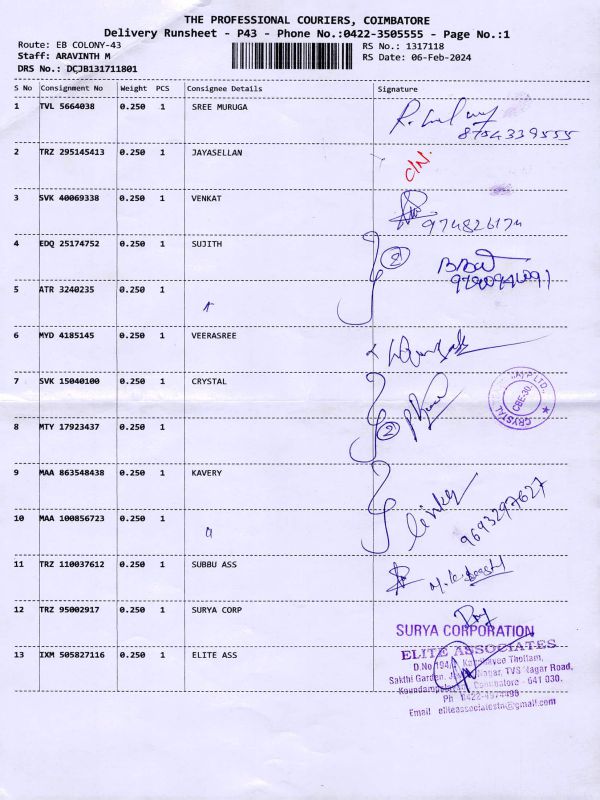 THE PROFESSIONAL COURIERS, COIMBATORE
Delivery Runsheet - P43 - Phone No.:0422-3505555 - Page No.:1
Route: EB COLONY-43 RS No.: 1317118
Staff: ARAVINTH M RS Date: 06-Feb-2024
DRS No.: DCJB131711801
S No Consignment No Weight PCS Consignee Details Signature
1 TVL 5664038 0.250 1 SREE MURUGA
8754339555
2 TRZ 295145413 0.250 1 JAYASELLAN
3 SVK 40069338 0.250 1 VENKAT
4 EDQ 25174752 0.250 1 SUJITH 2
5 ATR 3240235 0.250 1
6 MYD 4185145 0.250 1 VEERASREE
7 SVK 15040100 0.250 1 CRYSTAL
CRYSTAL P LTD. CBE-30
8 MTY 17923437 0.250 1 2
9 MAA 863548438 0.250 1 KAVERY
9693297627
10 MAA 100856723 0.250 1
11 TRZ 110037612 0.250 1 SUBBU ASS
12 TRZ 95002917 0.250 1 SURYA CORP
SURYA CORPORATION
13 IXM 505827116 0.250 1 ELITE ASS
ELITE ASSOCIATES
D.No 194/ Thottam,
Sakthi Garden, Nagar, TVS Nagar Road,
Coimbatore - 641 030.
Ph 0422-4974498
Email eliteassociatestn@gmail.com